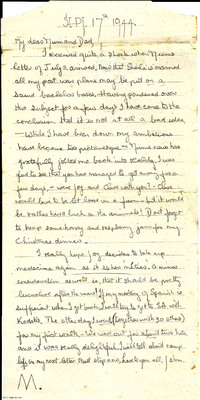 SEPT. 17th 1944.
My dear Mum and Dad,
I received quite a shock when Mums
letter of July 2 arrived, now that Sheila is married
all my post war plans may be put on a
sound bachelor basis. Having pondered over
this subject for a few days I have come to the
conclusion that it is not at all a bad idea.
— While I have been down my ambitions
have become less picturesque — Mums news has
gratefully jolted me back into reality. I was
glad to see that you has managed to get away for a
few days, — were Joy and Clive with you? — Clive
would love to be let loose on a farm — but it would
be rather hard luck on the animals! Don't forget
to bag some honey and raspberry jam for my
Christmas dinner. —
I really hope Joy decides to take up
medicine again as it is her métier. A minor
consideration as well is, that it should be pretty
lucrative after the war! If my making in Spanish is
sufficient when I get back, I will try to get to S.A. with
Kodaks. The other day I went (together with 30 others)
for my first walk — We were out for about two hrs,
and it was really delightful, I will tell about camp
life in my next letter. Must stop now, love to you all, I am
M.